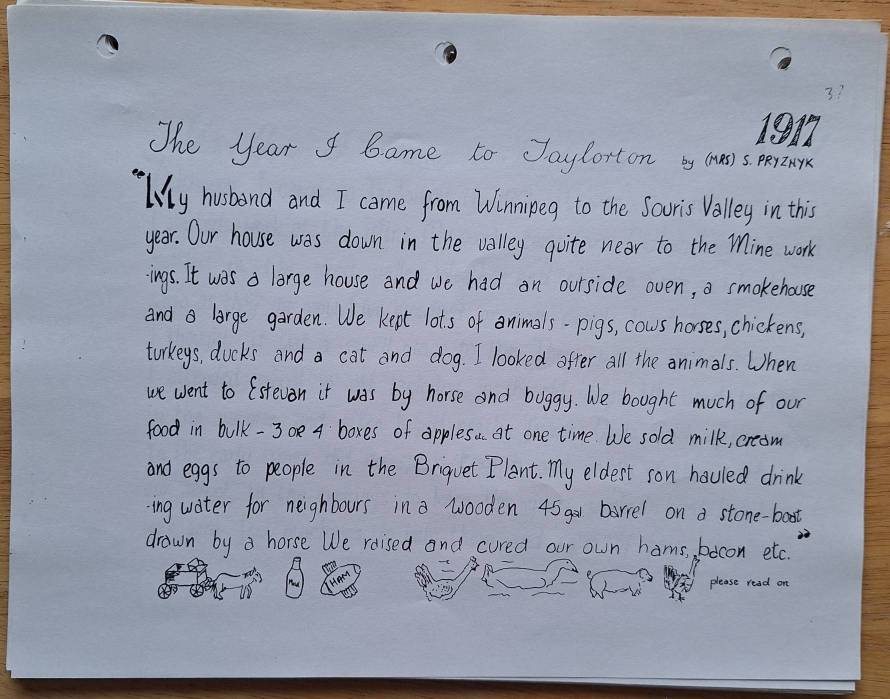 37
1917
The Year I Came to Taylorton by (MRS) S. PRYZNYK
"My husband and I came from Winnipeg to the Souris Valley in this
year. Our house was down in the valley quite near to the Mine work
-ings. It was a large house and we had an outside oven, a smokehouse
and a large garden. We kept lots of animals - pigs, cows horses, chickens,
turkeys, ducks and a cat and dog. I looked after all the animals. When
we went to Estevan it was by horse and buggy. We bought much of our
food in bulk - 3 or 4 boxes of apples at one time. We sold milk, cream
and eggs to people in the Briquet Plant. My eldest son hauled drink
-ing water for neighbours in a wooden 45 gal barrel on a stone-boat
drawn by a horse We raised and cured our own hams, bacon etc."
Milk
HAM
please read on